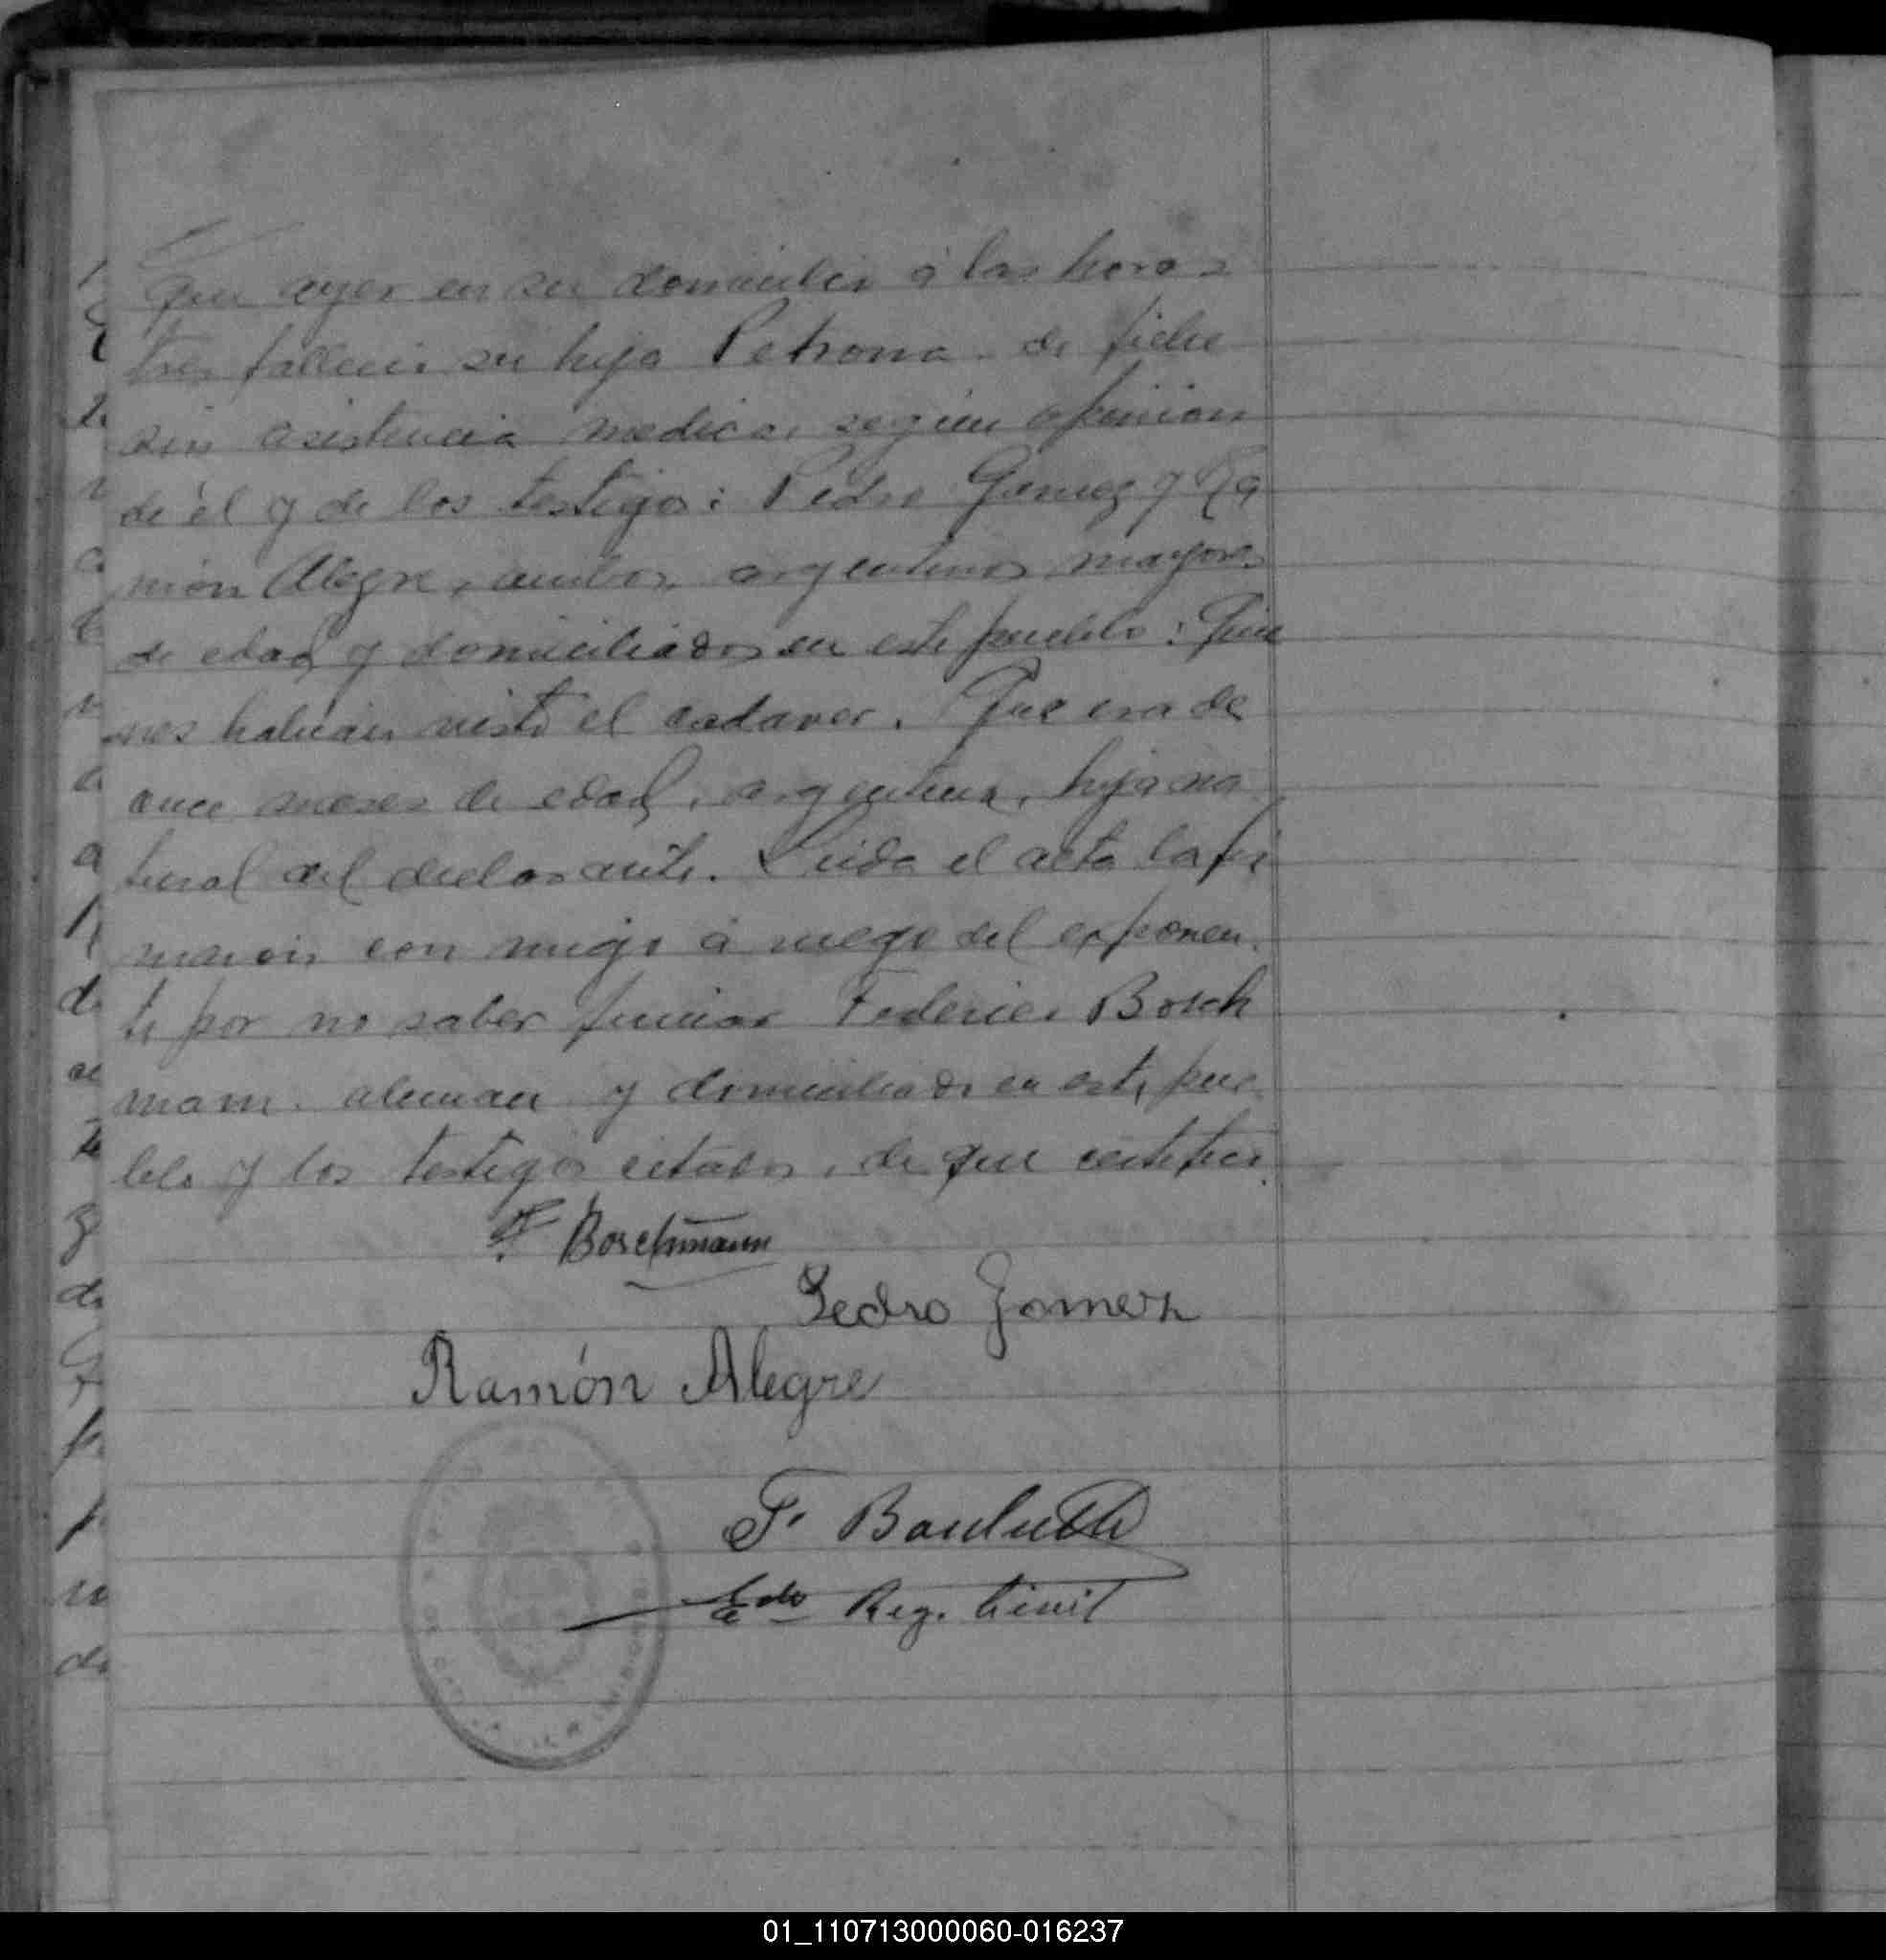 que ayer en su domicilio á las horas
tres falleció su hija Petrona de fiebre
sin asistencia medica, según opinion
de él y de los testigos: Pedro Gomez y Ra
món Alegre, ambos argentinos mayores
de edad y domiciliados en este pueblo: Quie
nes habian visto el cadaver. Que era de
once meses de edad, argentina, hija na
tural del declarante. Leida el acta la fir
maron con migo á ruego del exponen
te por no saber firmar Federico Bosch
mann. aleman y domiciliado en este pue
blo y los testigos citados, de que certifico.
F. Boschmann
Pedro Gomez
Ramón Alegre
F.
Edo Reg. Civil
01_110713000060-016237